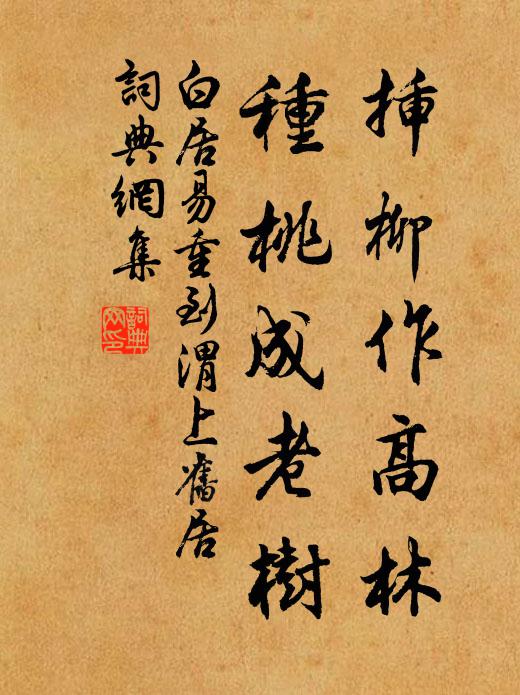 插柳作高林
種桃成老樹
白居易重到渭上舊居
詞典網集
詞典
网印